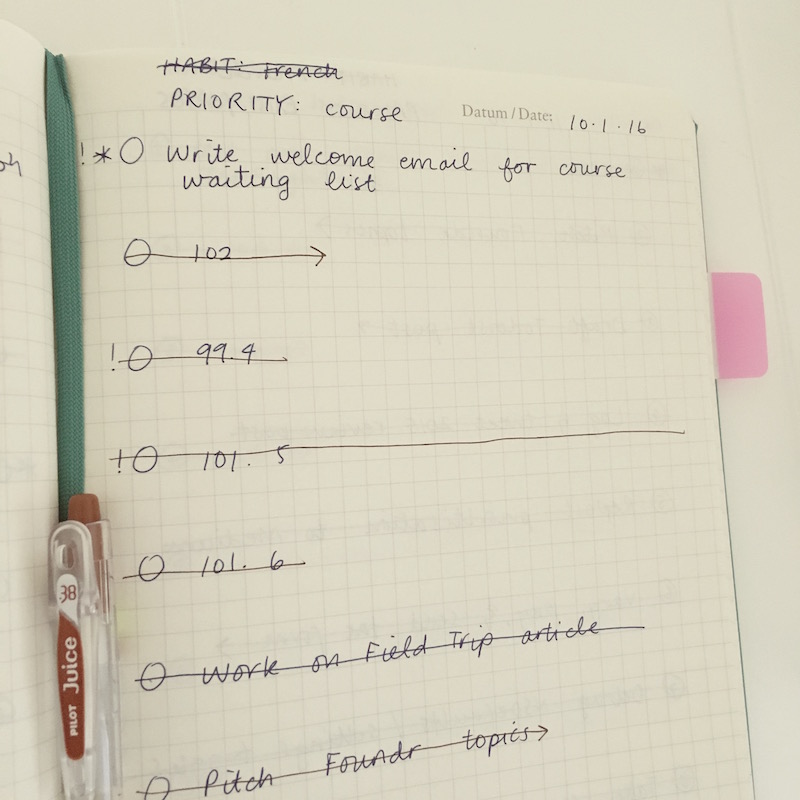 HABIT: French
PRIORITY: course
Datum / Date: 10.1.16
! * O Write welcome email for course
waiting list
102
! 99.4
! 101.5
101.6
Work on Field Trip article
Pitch Foundr topics
.38
PILOT Juice